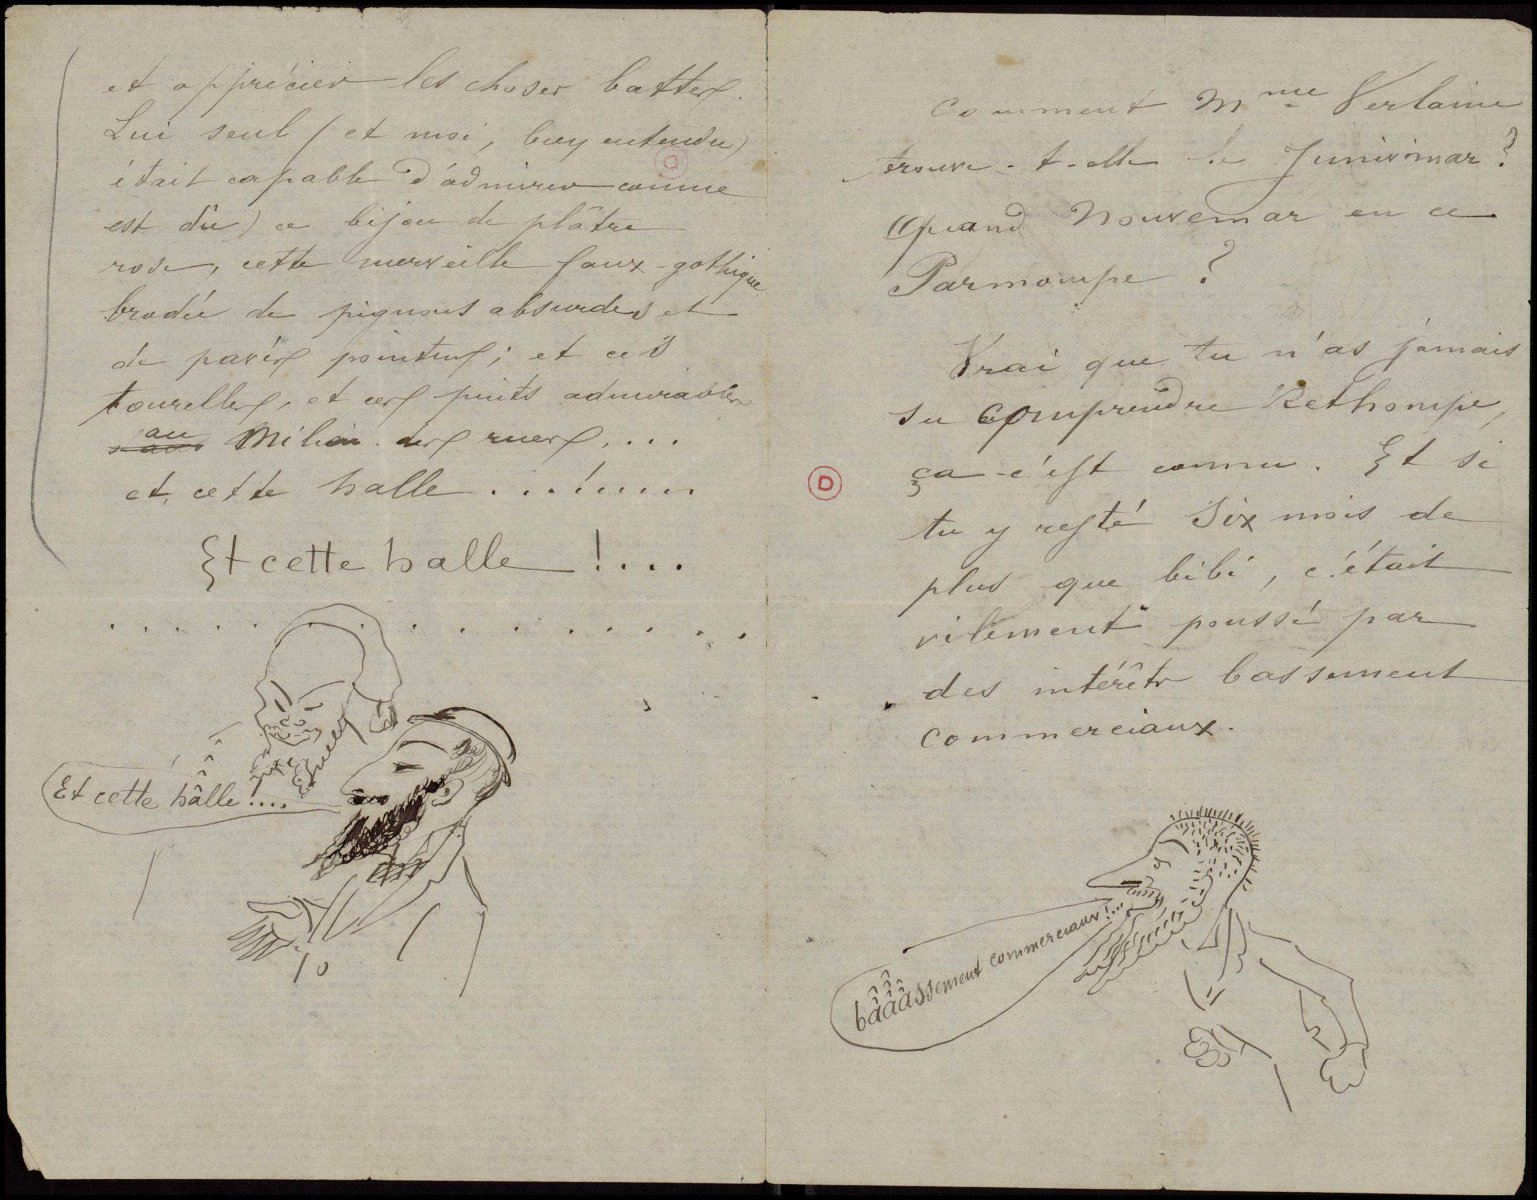 et apprécier les choses battes.
Lui seul (et moi, bien entendu)
était capable d'admirer comme
est dû) ce bijou de plâtre
rose, cette merveille faux-gothique
brodée de pignons absurdes et
de pavés pointus; et ces
tourelles, et ces puits admirables
au milieu des rues, ...
et cette halle ...!.....
Et cette halle !....
Et cette hâlle !....
Comment Mme Verlaine
trouve-t-elle le Junivimar ?
Quand Nouvemar en ce
Parmompe ?
Vrai que tu n'as jamais
su comprendre Rethompe,
ça c'est connu. Et si
tu y resté six mois de
plus que bibi, c'était
vilement poussé par
des intérêts bassement
commerciaux.
bâââssement commerciaux!...
D
D